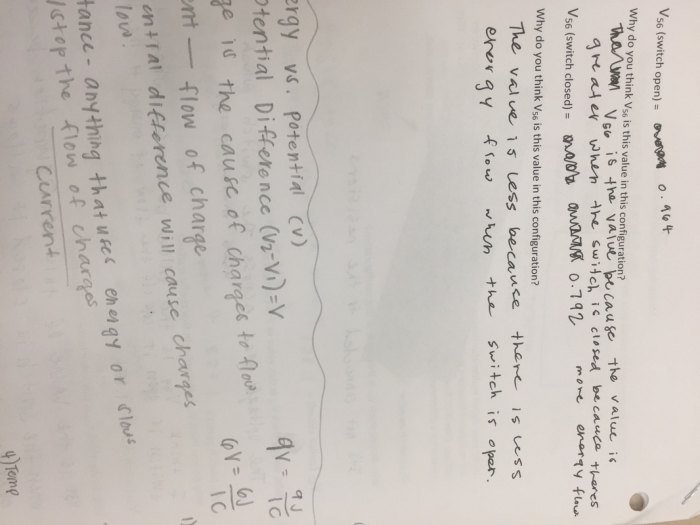 V56 (switch open) = 0.964
Why do you think V56 is this value in this configuration?
V56 is the value because the value is
greater when the switch is closed because theres
more energy flow
V56 (switch closed) = 0.792
Why do you think V56 is this value in this configuration?
The value is less because there is less
energy flow when the switch is open.
ergy vs. potential (V)
otential Difference (V2-V1)=V
ge is the cause of charges to flow.
ent — flow of charge
ential difference will cause charges
flow.
tance - anything that uses energy or slows
/stop the flow of charges
current
9V = 9J/1C
6V = 6J/1C
1)
4) Temp